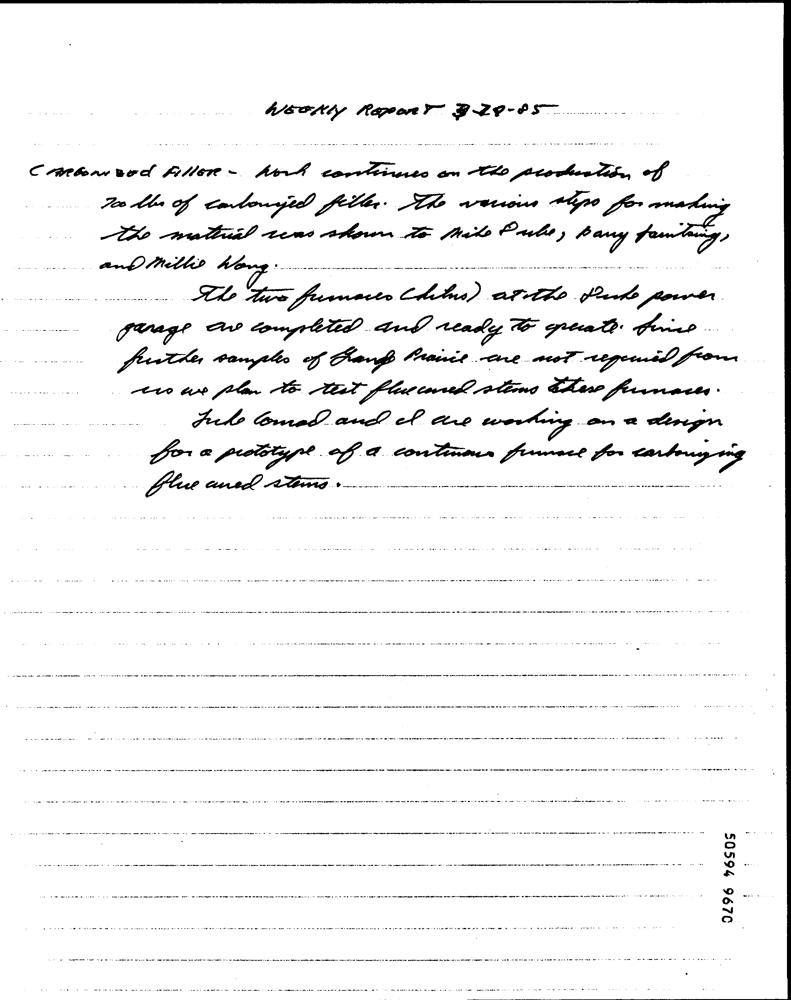 WEEKLY REPORT 3-28-85
CARBONIZED FILLER - Work continues on the production of
700 lbs of carbonized filler. The various steps for making
the material was shown to Mike Dube, Barry
and Millie Wong.
The two furnaces (kilns) at the Duke power
garage are completed and ready to operate. Since
further samples of Grand Prairie are not required from
us we plan to test flue cured stems these furnaces.
Conrad and I are working on a design
for a prototype of a continuous furnace for carbonizing
flue cured stems.
50594 9670